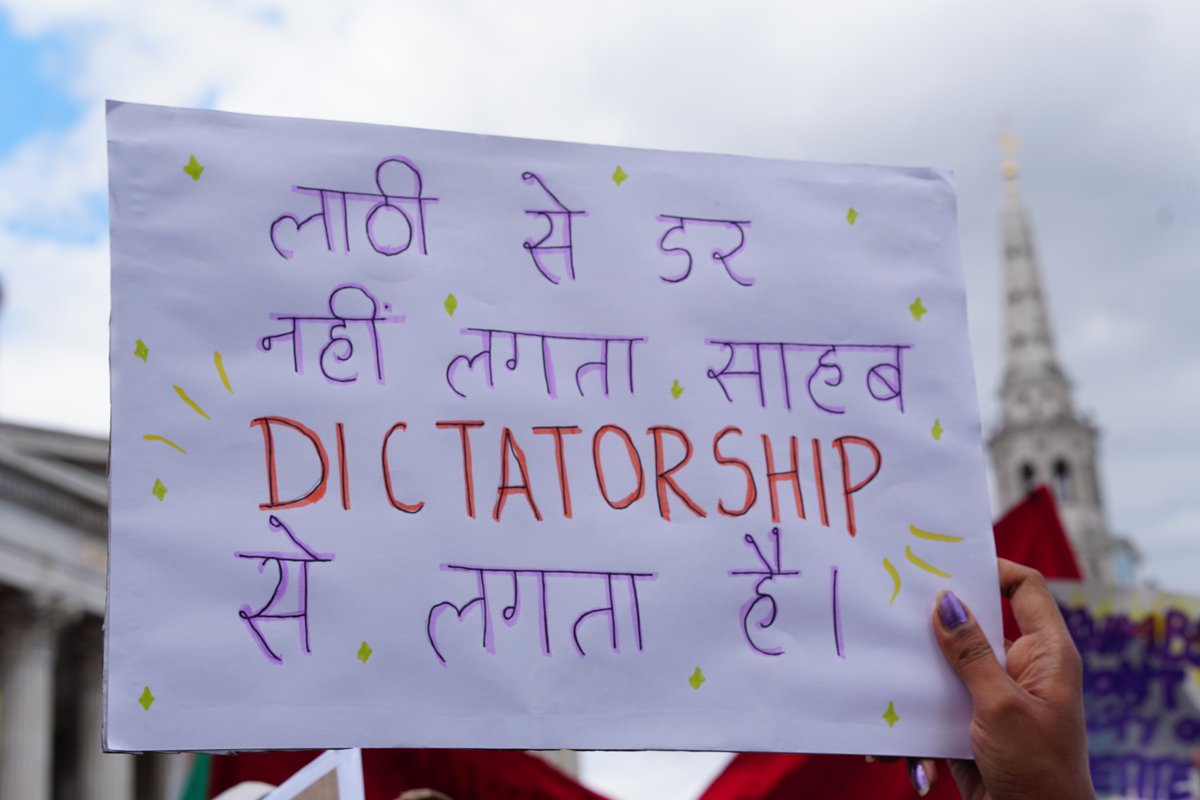 लाठी से डर
नहीं लगता साहब
DICTATORSHIP
से लगता है।